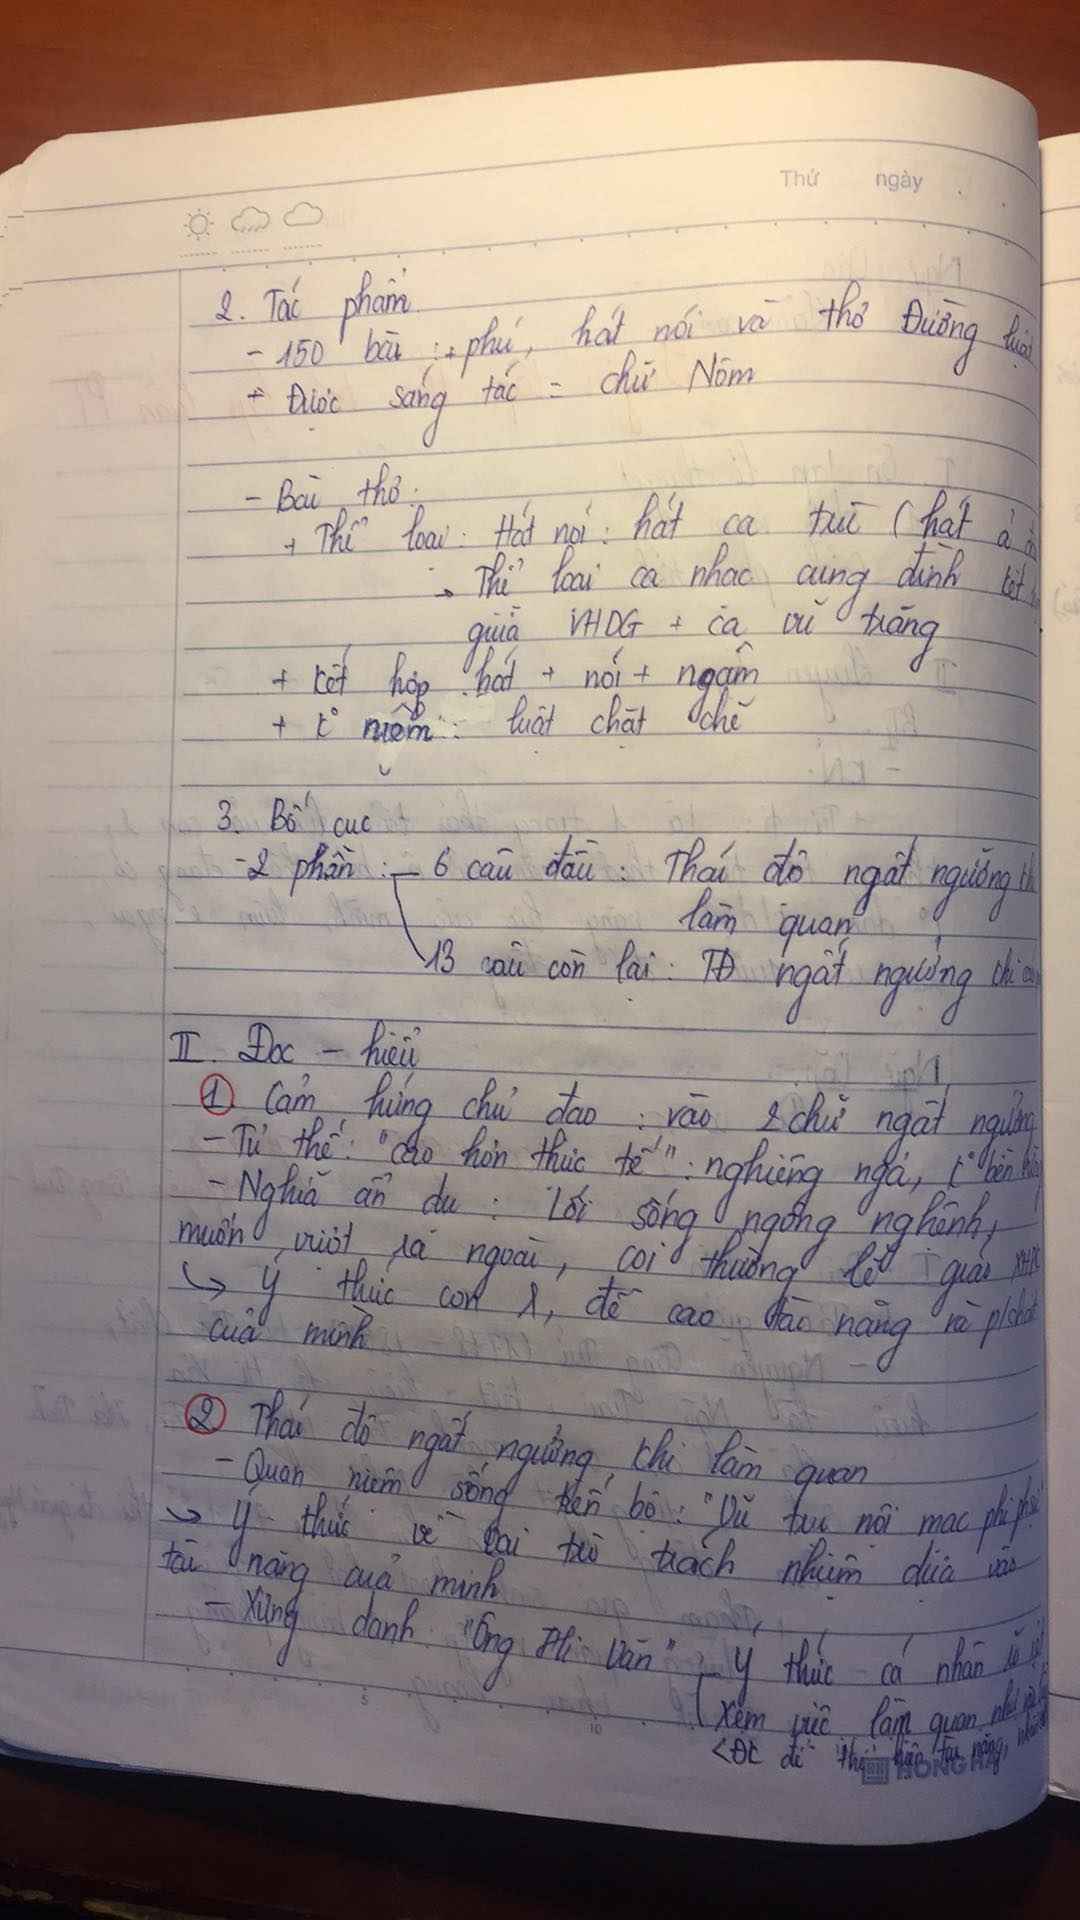 Thứ ngày
2. Tác phẩm
- 150 bài : + phú, hát nói và thơ Đường luật
+ Được sáng tác = chữ Nôm
- Bài thơ:
+ Thể loại: Hát nói: hát ca trù (hát ả
→ Thể loại ca nhạc cung đình kết
giữa VHDG + ca vũ
+ kết hợp hát + nói + ngâm
+ k° niêm : luật chặt chẽ
3. Bố cục
- 2 phần : - 6 câu đầu : Thái độ ngất ngưởng
làm quan
13 câu còn lại : TĐ ngất ngưởng khi
II. Đọc - hiểu
1 Cảm hứng chủ đạo : vào 2 chữ ngất ngưởng
- Tư thế: "cao hơn thực tế" : nghiêng ngả, k°
- Nghĩa ẩn dụ : Lối sống ngông nghênh,
muốn vượt ra ngoài, coi thường lễ giáo XHPK
↳ Ý thức con, đề cao tài năng và p/chất
của mình
2 Thái độ ngất ngưởng khi làm quan
- Quan niệm sống tiến bộ: "Vũ trụ nội mạc phi phận
→ Ý thức về vai trò trách nhiệm dựa vào
tài năng của mình
- Xưng danh "Ông Hi Văn" - Ý thức cá nhân
Xem việc làm quan như
ĐK để thể hiện tài năng,
HONG HA
5
10